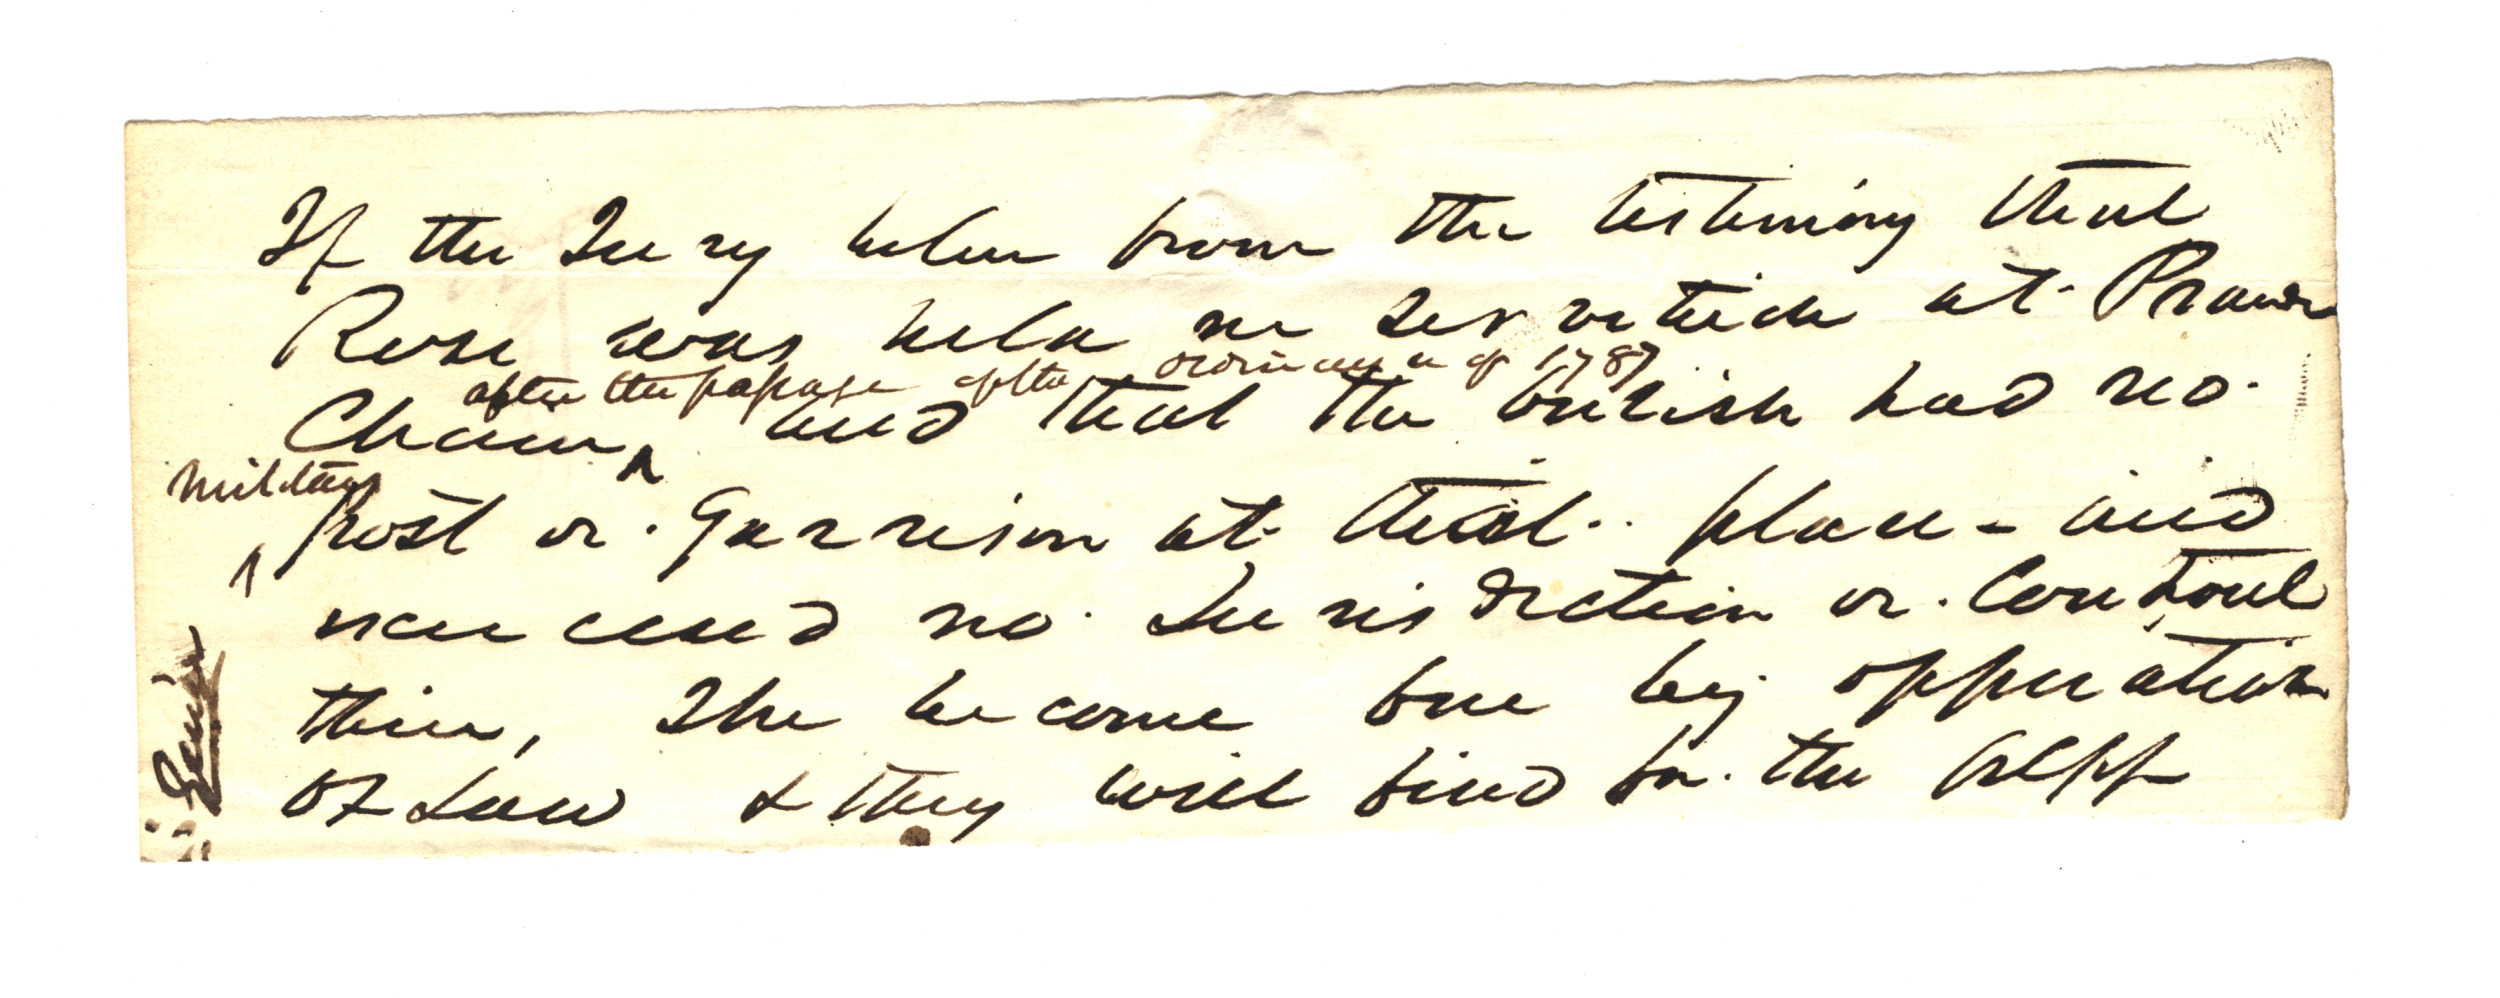 If the Jury beleve from the testimony that
Rose was held in servitude at Prairie
after the passage of the ordinance of 1787
Chein and that the British had no
military
post or Garrison at that place - and
exercised no Jurisdiction or Controul
thire, She become free by opperation
of Law & they will find for the Plff